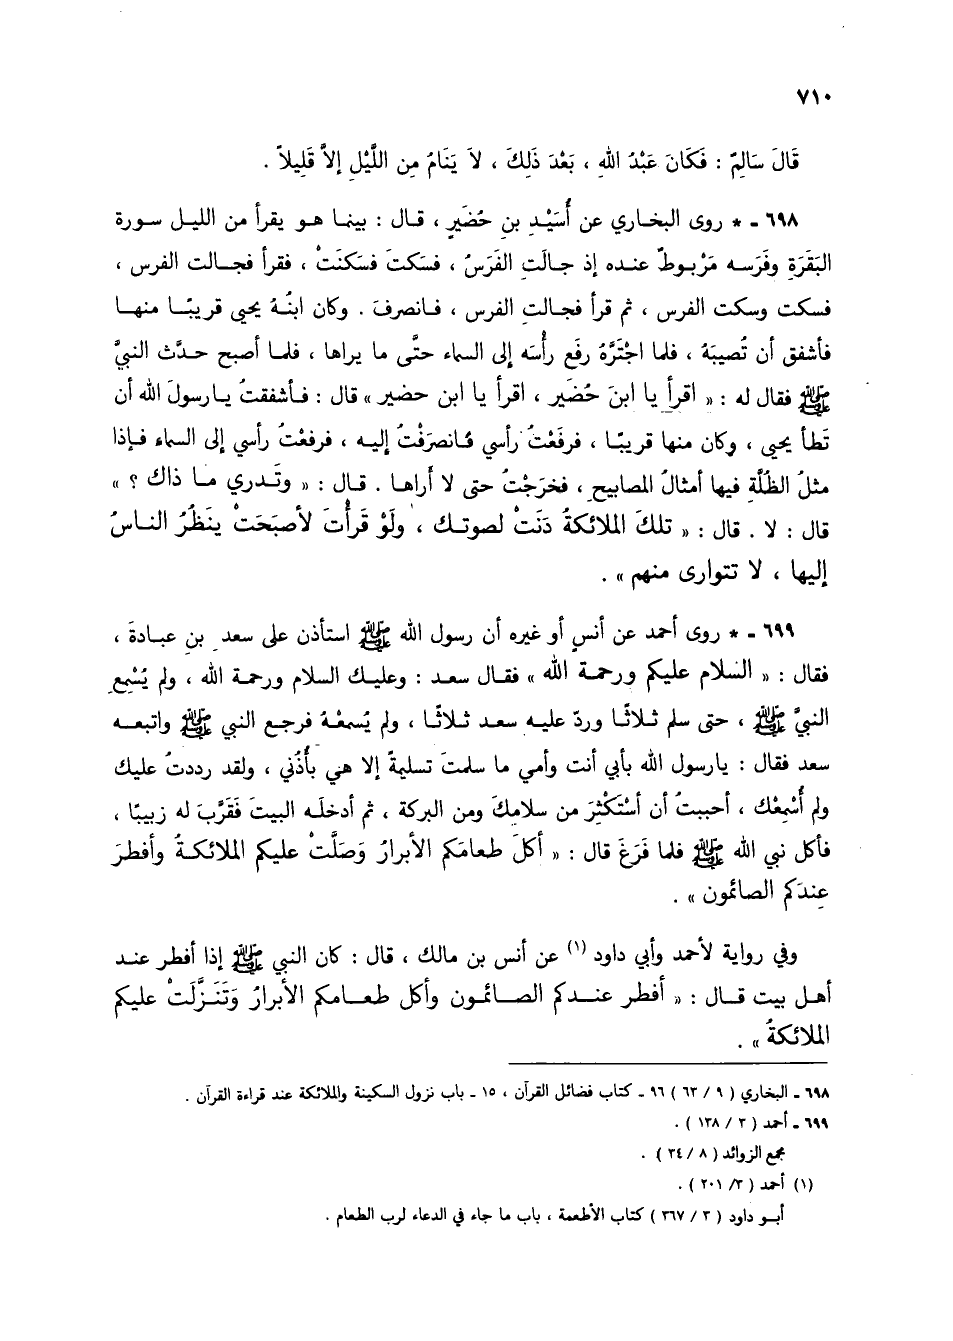 ٧١٠
قَالَ سَالِمٌ : فَكَانَ عَبْدُ اللهِ ، بَعْدَ ذَلِكَ ، لاَ يَنَامُ مِن اللَّيْلِ إلاَّ قَلِيلاً .
٦٩٨ - * روى البخاري عن أُسَيْدِ بنِ حُضَيرٍ ، قال : بينما هو يقرأ من الليل سورة
البَقَرَةِ وفَرَسه مَرْبوطٌ عنده إذ جالَتِ الفَرَسُ ، فسَكتَ فسَكنَتْ ، فقرأ فجالت الفرس ،
فسكت وسكت الفرس ، ثم قرأ فجالتِ الفرس ، فانصرفَ . وكان ابنُهُ يحيى قريبًا منها
فأشفق أن تُصيبَهُ ، فلما اجْتَرَّهُ رفَع رأْسَه إلى السماء حتَّى ما يراها ، فلما أصبح حدَّث النبيَّ
ﷺ فقال له : « اقرأ يا ابنَ حُضَير ، اقرأ يا ابن حضير » قال : فأشفقتُ يارسولَ الله أن
تَطأ يحيى ، وكان منها قريبًا ، فرفَعْتُ رأسي فانصرَفْتُ إليه ، فرفعْتُ رأسي إلى السماء فإذا
مثلُ الظُلَّةِ فيها أمثالُ المصابيحِ ، فخرَجْتُ حتى لا أَراها . قال : « وتَدري ما ذاك ؟ »
قال : لا . قال : « تلكَ الملائكةُ دَنَتْ لصوتك ، ولَوْ قَرأْتَ لأصبَحَتْ ينظُرُ الناسُ
إليها ، لا تتوارى منهم » .
٦٩٩ - * روى أحمد عن أنسٍ أو غيره أن رسول الله ﷺ استأذن على سعد بنِ عبادةَ ،
فقال : « السلام عليكم ورحمة الله » فقال سعد : وعليك السلام ورحمة الله ، ولم يُسْمِعِ
النبيَّ ﷺ ، حتى سلم ثلاثًا وردّ عليه سعد ثلاثًا ، ولم يُسمِعْهُ فرجع النبي ﷺ واتبعه
سعد فقال : يارسول الله بأبي أنت وأمي ما سلمتَ تسليمةً إلا هي بأُذُني ، ولقد رددتُ عليك
ولم أُسْمِعْك ، أحببتُ أن أسْتَكْثِرَ من سلامِكَ ومن البركة ، ثم أدخلَه البيتَ فَقَرَّبَ له زبيبًا ،
فأكل نبي الله ﷺ فلما فَرَغَ قال : « أكلَ طعامَكم الأبرارُ وَصَلَّتْ عليكم الملائكةُ وأفطرَ
عِندَكم الصائمون » .
وفي رواية لأحمد وأبي داود (١) عن أنس بن مالك ، قال : كان النبي ﷺ إذا أفطر عند
أهل بيت قال : « أفطر عندكم الصائمون وأكل طعامكم الأبرارُ وَتَنَزَّلَتْ عليكم
الملائكةُ » .
٦٩٨ - البخاري ( ٩ / ٦٣ ) ٩٦ - كتاب فضائل القرآن ، ١٥ - باب نزول السكينة والملائكة عند قراءة القرآن .
٦٩٩ - أحمد ( ٣ / ١٣٨ ) .
مجمع الزوائد ( ٨ / ٣٤ ) .
(١) أحمد ( ٣/ ٢٠١ ) .
أبو داود ( ٣ / ٣٦٧ ) كتاب الأطعمة ، باب ما جاء في الدعاء لرب الطعام .